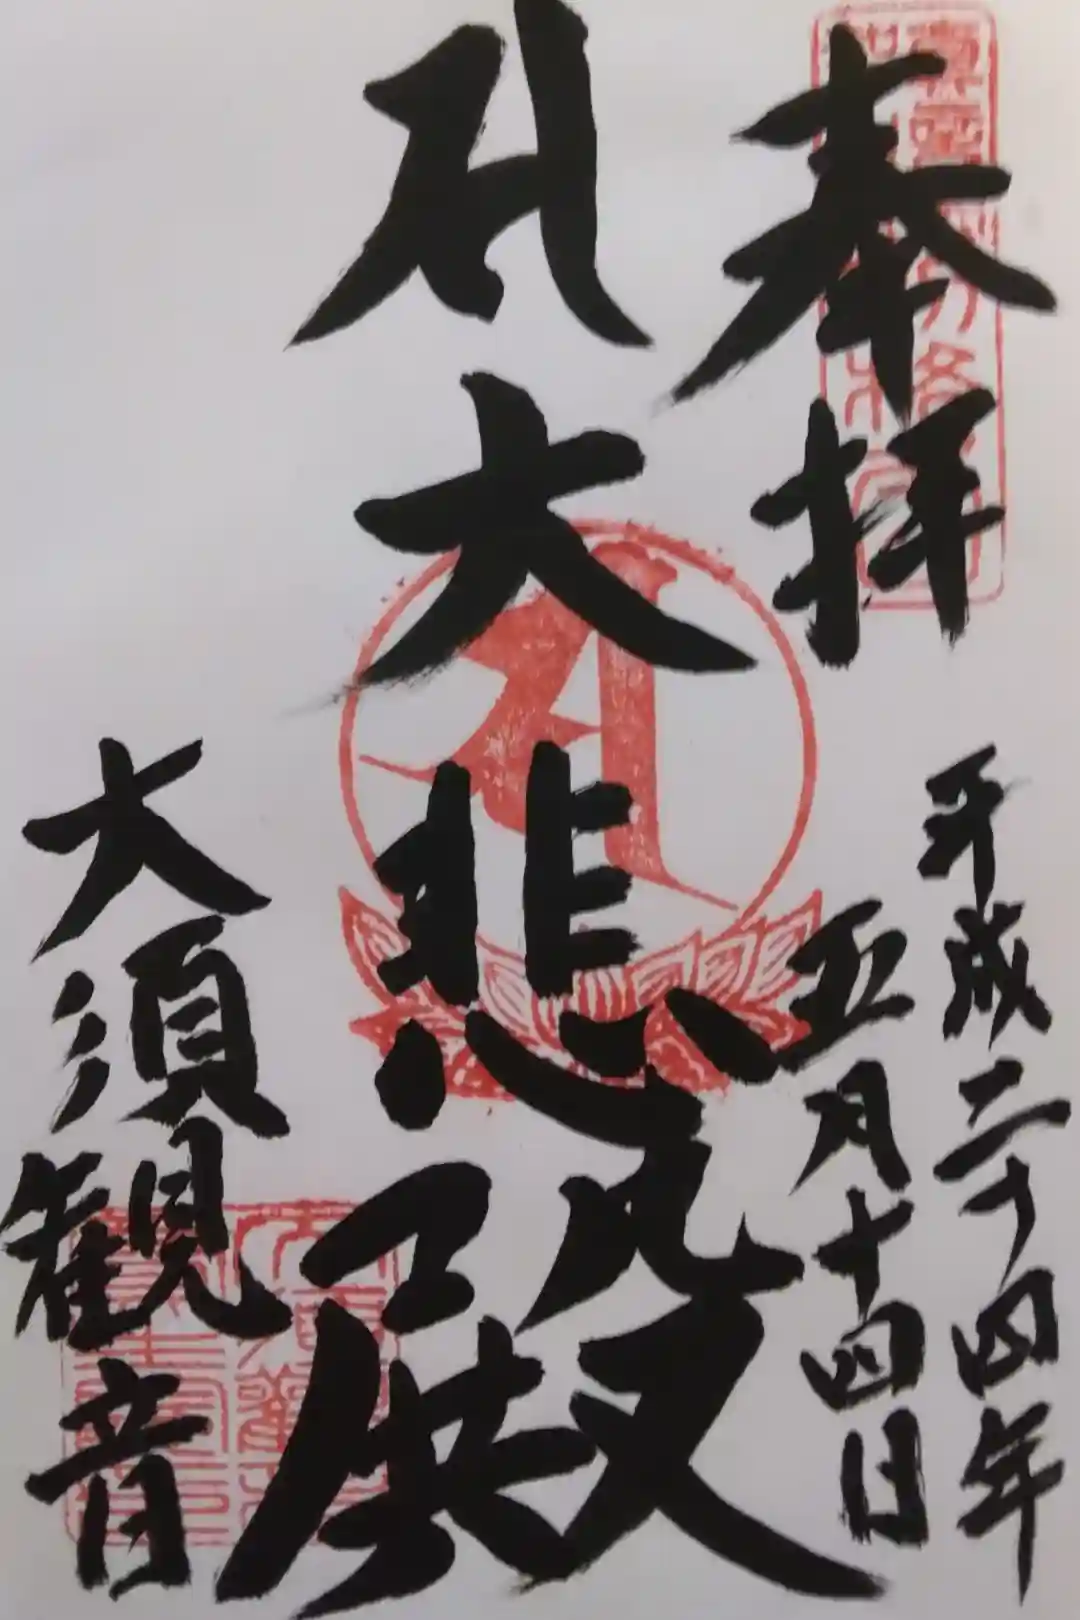 奉拝
平成二十四年
五月十四日
大悲殿
大須観音